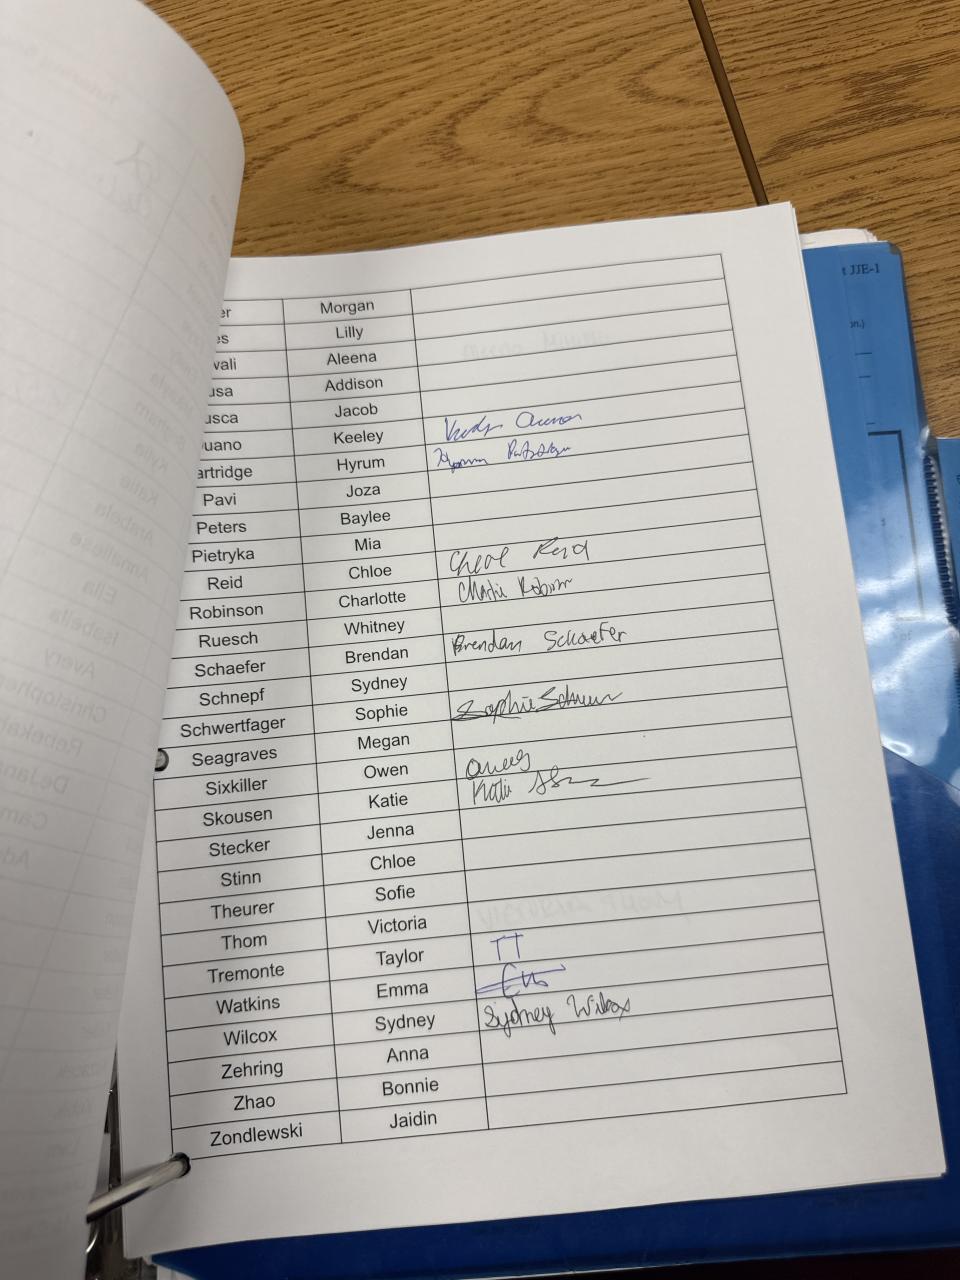 er Morgan
es Lilly
wali Aleena
usa Addison
usca Jacob
uano Keeley
artridge Hyrum
Pavi Joza
Peters Baylee
Pietryka Mia
Reid Chloe Chloe Reid
Robinson Charlotte Charlie Robinson
Ruesch Whitney
Schaefer Brendan Brendan Schaefer
Schnepf Sydney
Schwertfager Sophie Sophie
Seagraves Megan
Sixkiller Owen
Skousen Katie Katie
Stecker Jenna
Stinn Chloe
Theurer Sofie
Thom Victoria
Tremonte Taylor TT
Watkins Emma
Wilcox Sydney Sydney Wilcox
Zehring Anna
Zhao Bonnie
Zondlewski Jaidin
t JJE-1
on.)